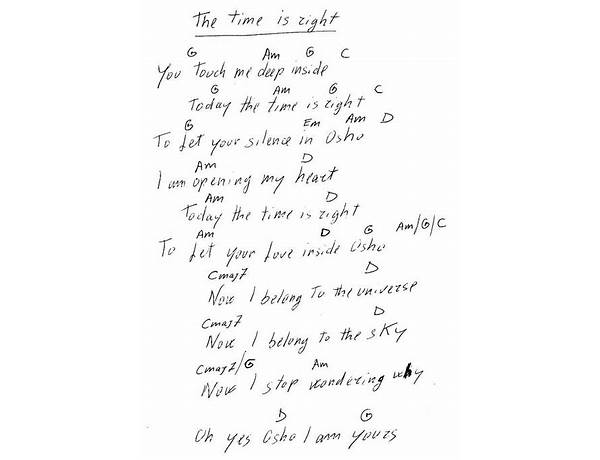 The time is right
G Am G C
You Touch me deep inside
G Am G C
Today the time is right
G Em Am D
To Let your silence in Osho
Am D
I am opening my heart
Am D
Today the time is right
Am D G Am/G/C
To Let your Love inside Osho
Cmaj7 D
Now I belong To the universe
Cmaj7 D
Now I belong to the sky
Cmaj7/G Am
Now I stop wondering why
D G
Oh yes Osho I am yours